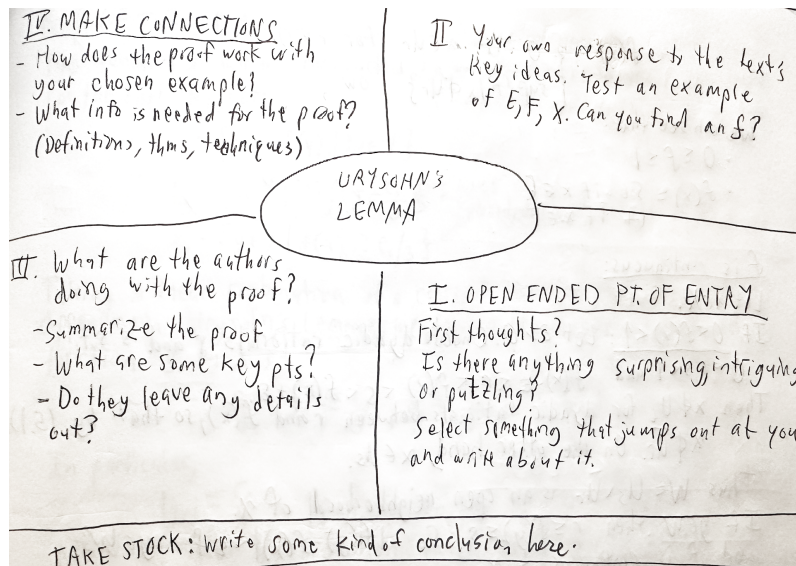 IV. MAKE CONNECTIONS
- How does the proof work with
your chosen example?
- What info is needed for the proof?
(Definitions, thms, techniques)
II Your own response to the text's
key ideas. Test an example
of E, F, X. Can you find an f?
URYSOHN'S
LEMMA
III. What are the authors
doing with the proof?
- Summarize the proof
- What are some key pts?
- Do they leave any details
out?
I. OPEN ENDED PT. OF ENTRY
First thoughts?
Is there anything surprising, intriguing
or puzzling?
Select something that jumps out at you
and write about it.
TAKE STOCK: Write some kind of conclusion here.